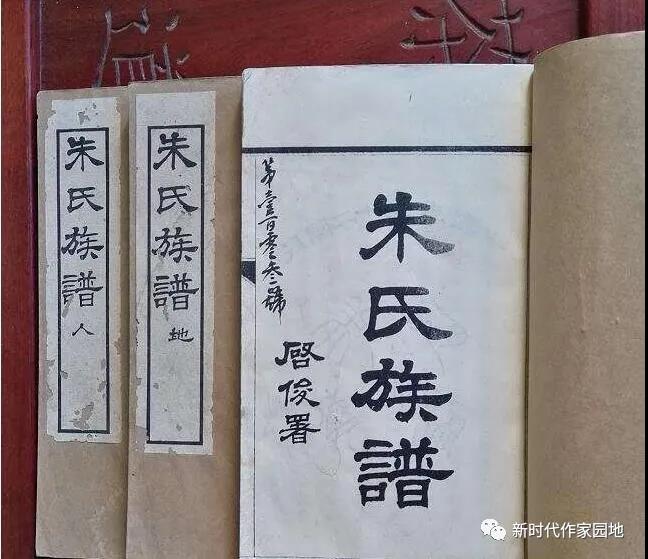 朱氏族譜
人
朱氏族譜
地
第壹百零叁號
朱氏族譜
啓俊署
新时代作家园地